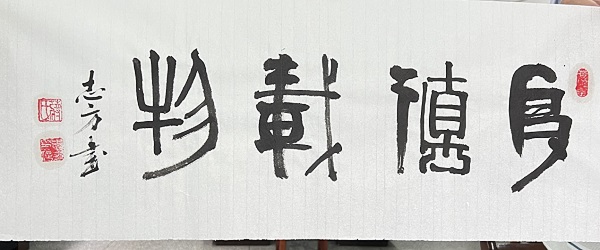 厚德載物
志方書